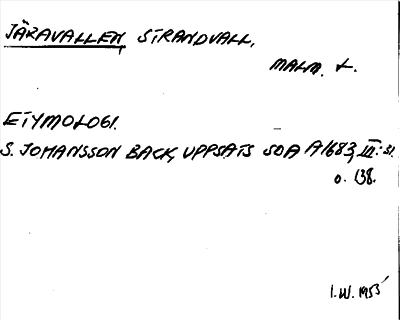 JÄRAVALLEN, STRANDVALL,
MALM. L.
ETYMOLOGI.
S. JOHANSSON BACK, UPPSATS SOA A1683, III: s.
o. 138.
I.W. 1953